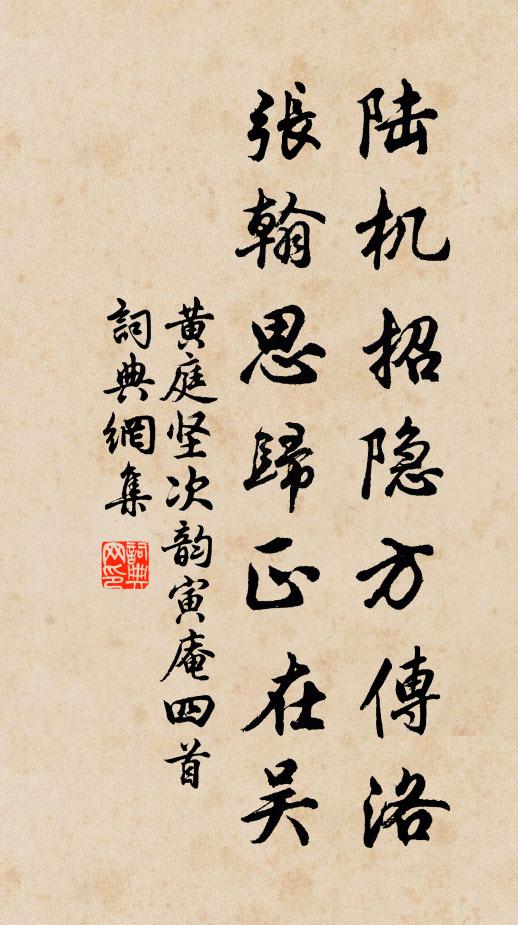 陆机招隐方傳洛
張翰思歸正在吴
黄庭坚次韵寅庵四首
詞典網集
詞典网印